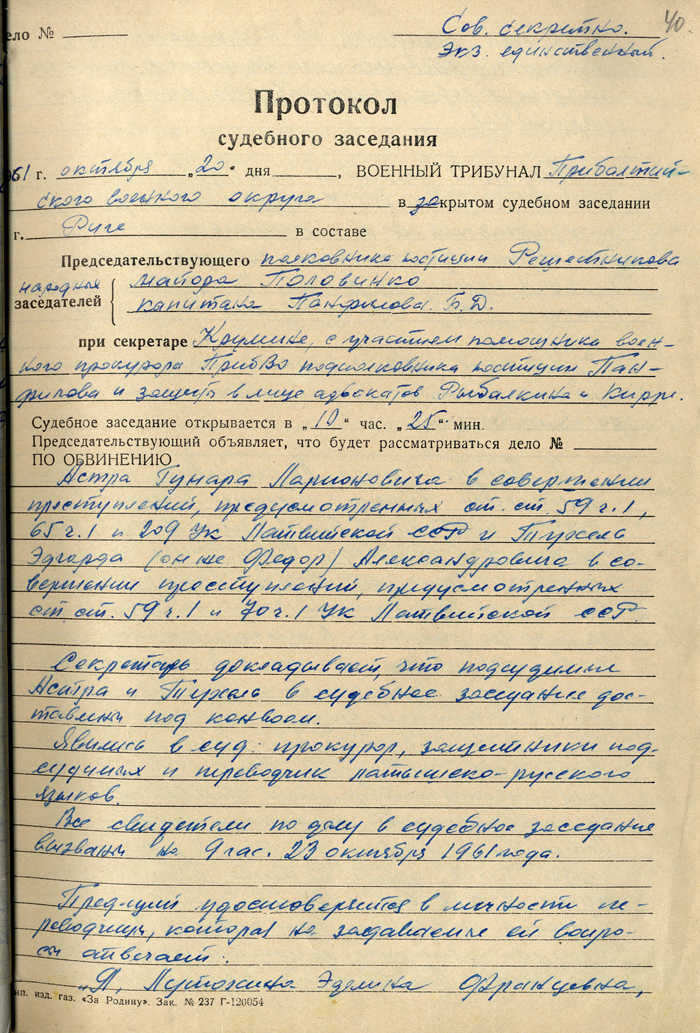 Сов. секретно. 40.
ело № Экз. единственный.
Протокол
судебного заседания
61 г. октября „20“ дня , ВОЕННЫЙ ТРИБУНАЛ Прибалтий-
ского военного округа в закрытом судебном заседании
г. Риге в составе
Председательствующего полковника юстиции Решетникова
народных майора Половинко
заседателей капитана Панфилова Б.Д.
при секретаре Крумине, с участием помощника воен-
ного прокурора ПрибВО подполковника юстиции Пан-
филова и защиты в лице адвокатов Рыбалкина и Кирре.
Судебное заседание открывается в „10“ час. „25“ мин.
Председательствующий объявляет, что будет рассматриваться дело №
ПО ОБВИНЕНИЮ
Астра Гунара Ларионовича в совершении
преступлений, предусмотренных ст. ст. 59 ч.1,
65 ч.1 и 209 УК Латвийской ССР и Тухела
Эдгарда (он же Федор) Александровича в со-
вершении преступлений, предусмотренных
ст. ст. 59 ч.1 и 70 ч.1 УК Латвийской ССР.
Секретарь докладывает, что подсудимые
Астра и Тухела в судебное заседание дос-
тавлены под конвоем.
Явились в суд: прокурор, защитники под-
судимых и переводчик латышско-русского
языков.
Все свидетели по делу в судебное заседание
вызваны на 9 час. 23 октября 1961 года.
Пред-щий удостоверяется в личности пе-
реводчицы, которая на задаваемые ей вопро-
сы отвечает:
„Я, Эделина Францевна,
ип. изд. газ. «За Родину». Зак. № 237 Г-120054